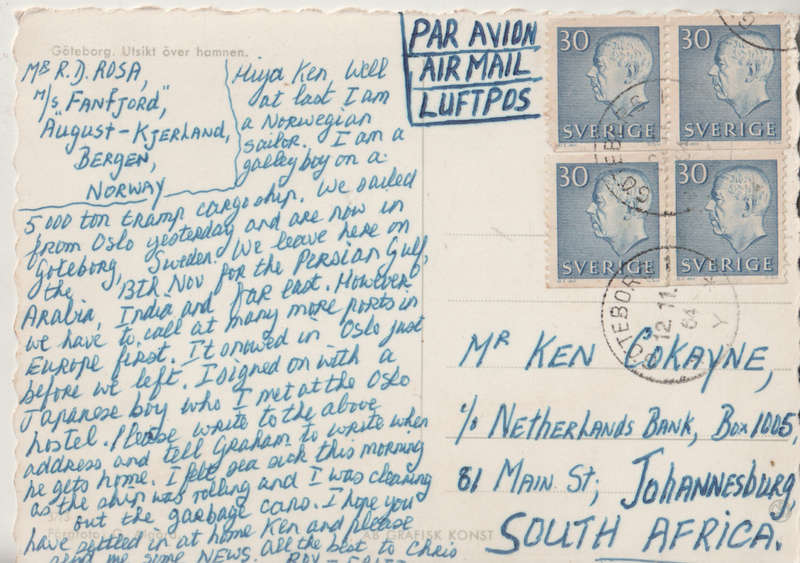 Göteborg. Utsikt över hamnen.
MR R.D. ROSA,
M/S "FANFJORD",
"August-Kjerland,
BERGEN,
NORWAY
Hiya Ken, Well
at last I am
a Norwegian
sailor. I am a
galley boy on a
5000 ton tramp cargo ship. We sailed
from Oslo yesterday and are now in
Goteborg, Sweden. We leave here on
the 13th Nov for the Persian Gulf,
Arabia, India and Far East. However
we have to call at many more ports in
Europe first. It snowed in Oslo just
before we left. I signed on with a
Japanese boy who I met at the Oslo
hostel. Please write to the above
address and tell Graham to write when
he gets home. I felt sea sick this morning
as the ship was rolling and I was cleaning
out the garbage cans. I hope you
have settled in at home Ken and please
send me some NEWS. All the best to Chris
ROY
AB GRAFISK KONST
PAR AVION
AIR MAIL
LUFTPOS
30 30
SVERIGE SVERIGE
30 30
SVERIGE SVERIGE
GÖTEBORG
12.11.
64
MR KEN COKAYNE,
c/o NETHERLANDS BANK, BOX 1005,
81 MAIN ST; JOHANNESBURG
SOUTH AFRICA.